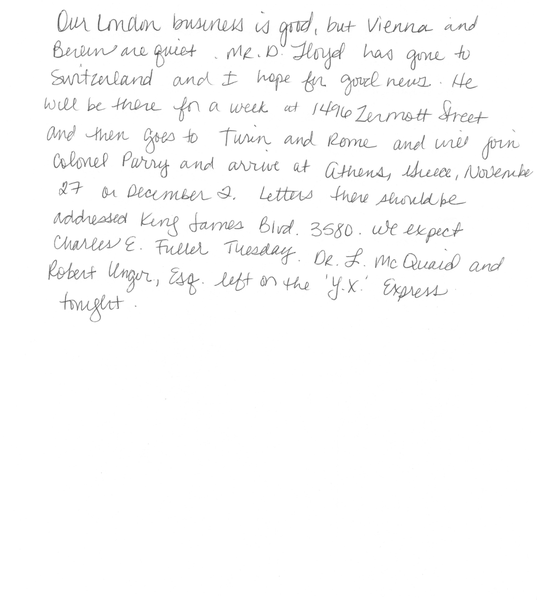 Our London business is good, but Vienna and
Berlin are quiet. Mr. D. Lloyd has gone to
Switzerland and I hope for good news. He
will be there for a week at 1496 Zermott Street
and then goes to Turin and Rome and will join
Colonel Parry and arrive at Athens, Greece, November
27 or December 2. Letters there should be
addressed King James Blvd. 3580. We expect
Charles E. Fuller Tuesday. Dr. L. McQuaid and
Robert Unger, Esq. left on the 'Y.X.' Express
tonight.